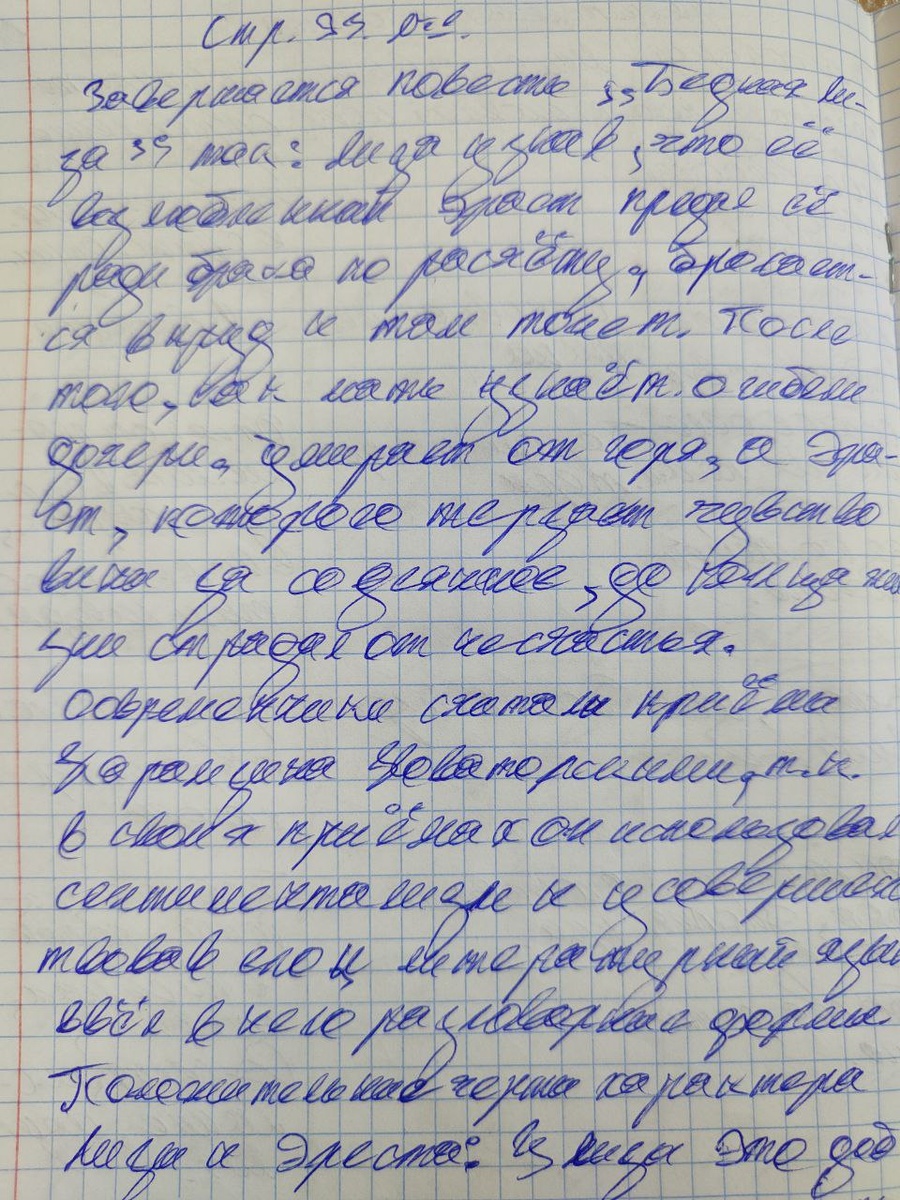 Стр. 93.
Завершается повесть „Бедная Ли-
за" так: Лиза узнав, что её
возлюбленный Эраст предал её
ради брака по расчёту, бросает-
ся в пруд и там тонет. После
того, как мать узнаёт о гибели
дочери, умирает от горя, а Эра-
ст, которого терзает чувство
вины за содеянное, до конца жи
зни страдал от несчастья.
Современники считали приёмы
Карамзина новаторскими, т.к.
в своих приёмах он использовал
сентиментализм и усовершенс
твовав его и литературный язык
ввёл в него разговорные формы.
Положительные черты характера
Лизы и Эраста: У Лизы это доб